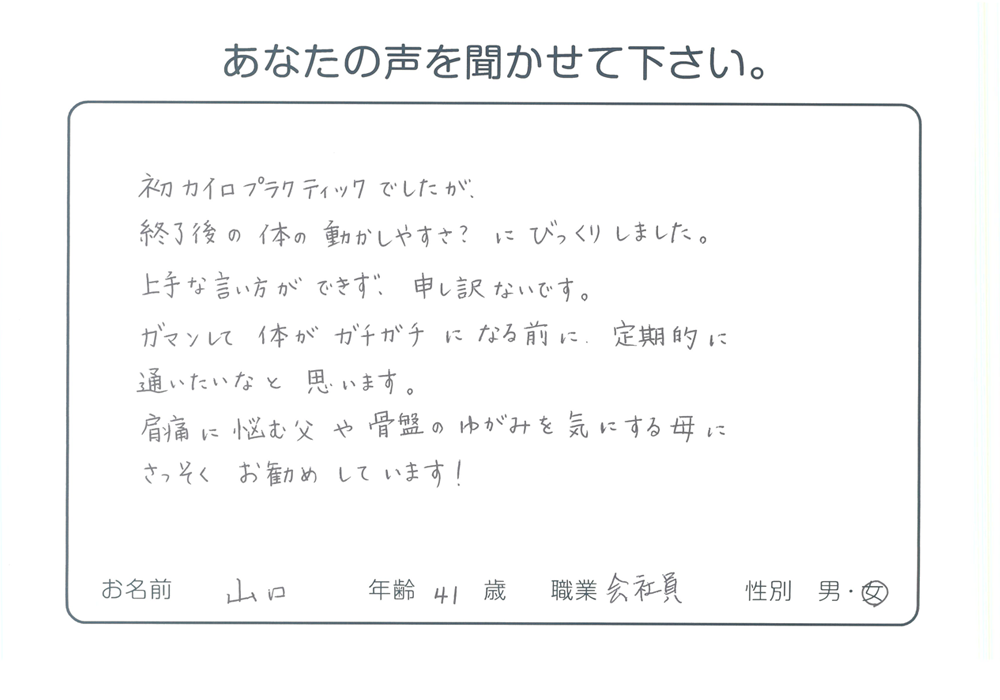 あなたの声を聞かせて下さい。
初カイロプラクティックでしたが、
終了後の体の動かしやすさ？にびっくりしました。
上手な言い方ができず、申し訳ないです。
ガマンして体がガチガチになる前に、定期的に
通いたいなと思います。
肩痛に悩む父や骨盤のゆがみを気にする母に
さっそくお勧めしています！
お名前 山口 年齢 41 歳 職業 会社員 性別 男・女